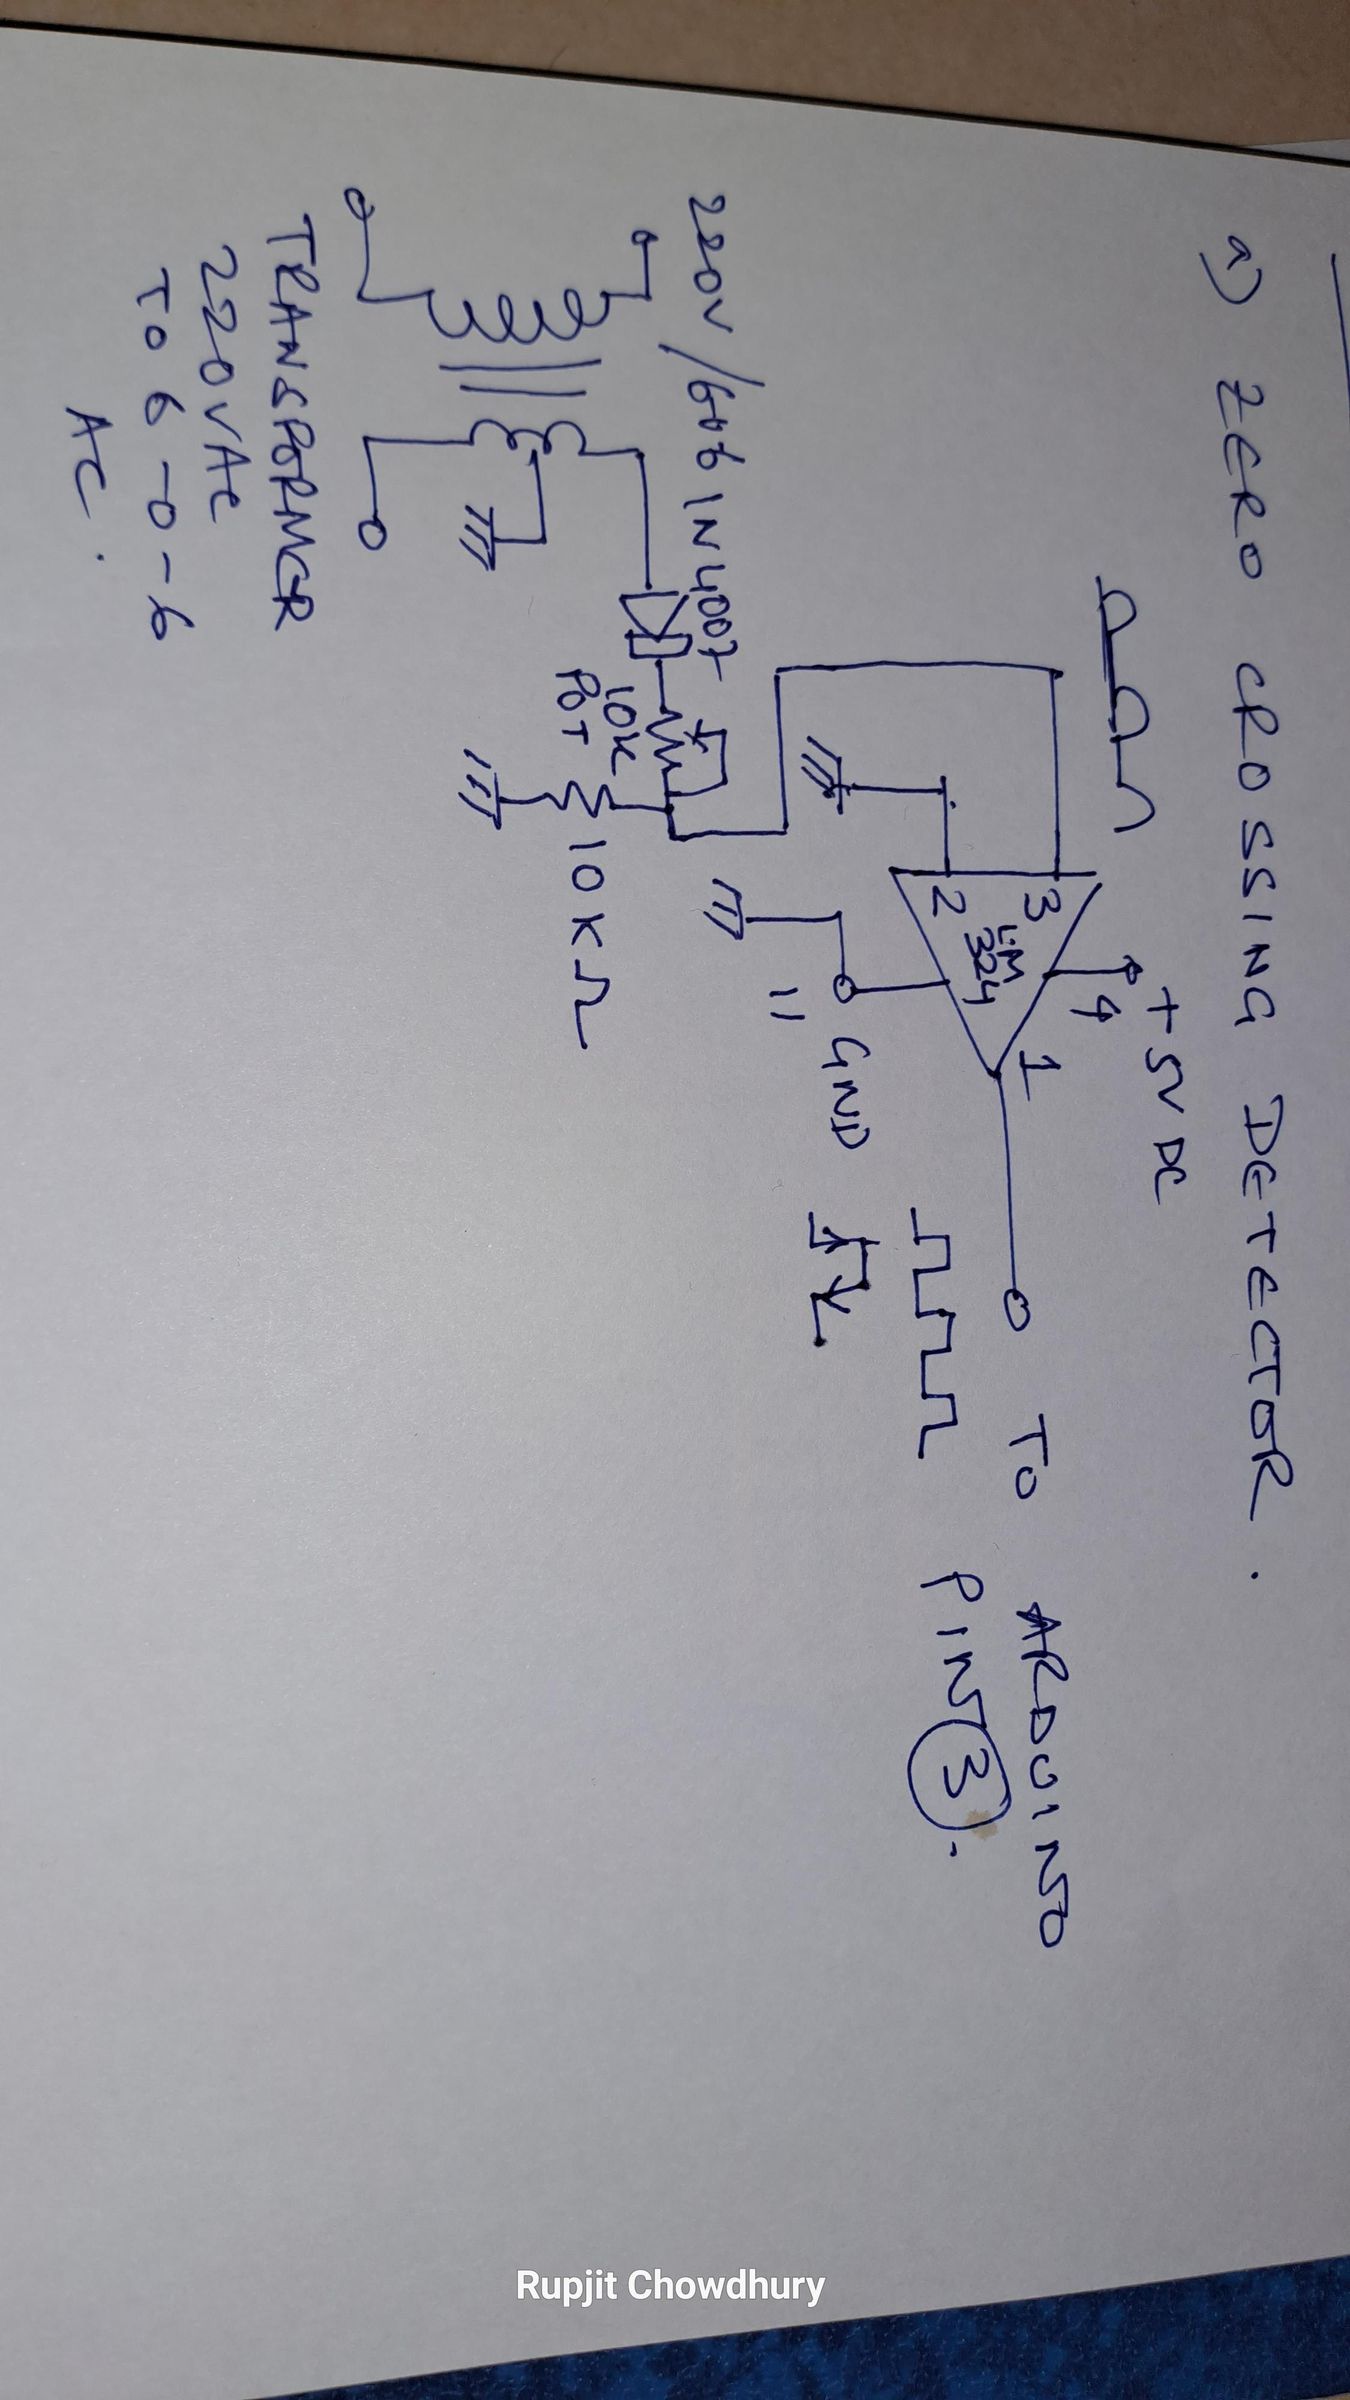 a) ZERO CROSSING DETECTOR.
+5V DC
4
3
1
2
LM
324
TO ARDUINO
PIN 3.
GND
11
220V/606 1N4007
10K
POT
10KΩ
TRANSFORMER
220VAC
TO 6-0-6
AC.
Rupjit Chowdhury